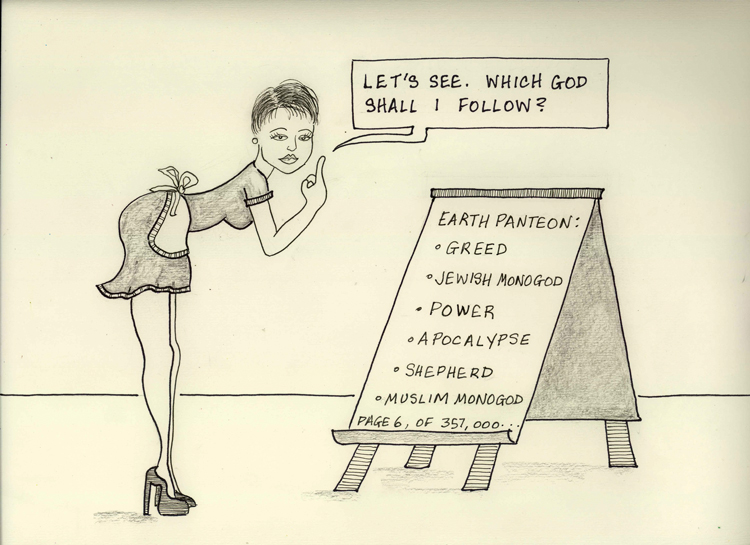 LET'S SEE. WHICH GOD
SHALL I FOLLOW?
EARTH PANTEON:
• GREED
• JEWISH MONOGOD
• POWER
• APOCALYPSE
• SHEPHERD
• MUSLIM MONOGOD
PAGE 6, OF 357,000...